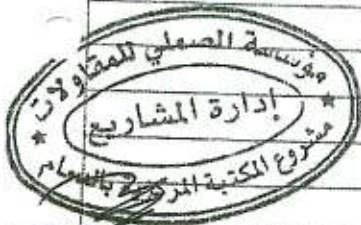 مؤسسة الصملي للمقاولات
إدارة المشاريع
مشروع المكتبة المركزية بالدمام